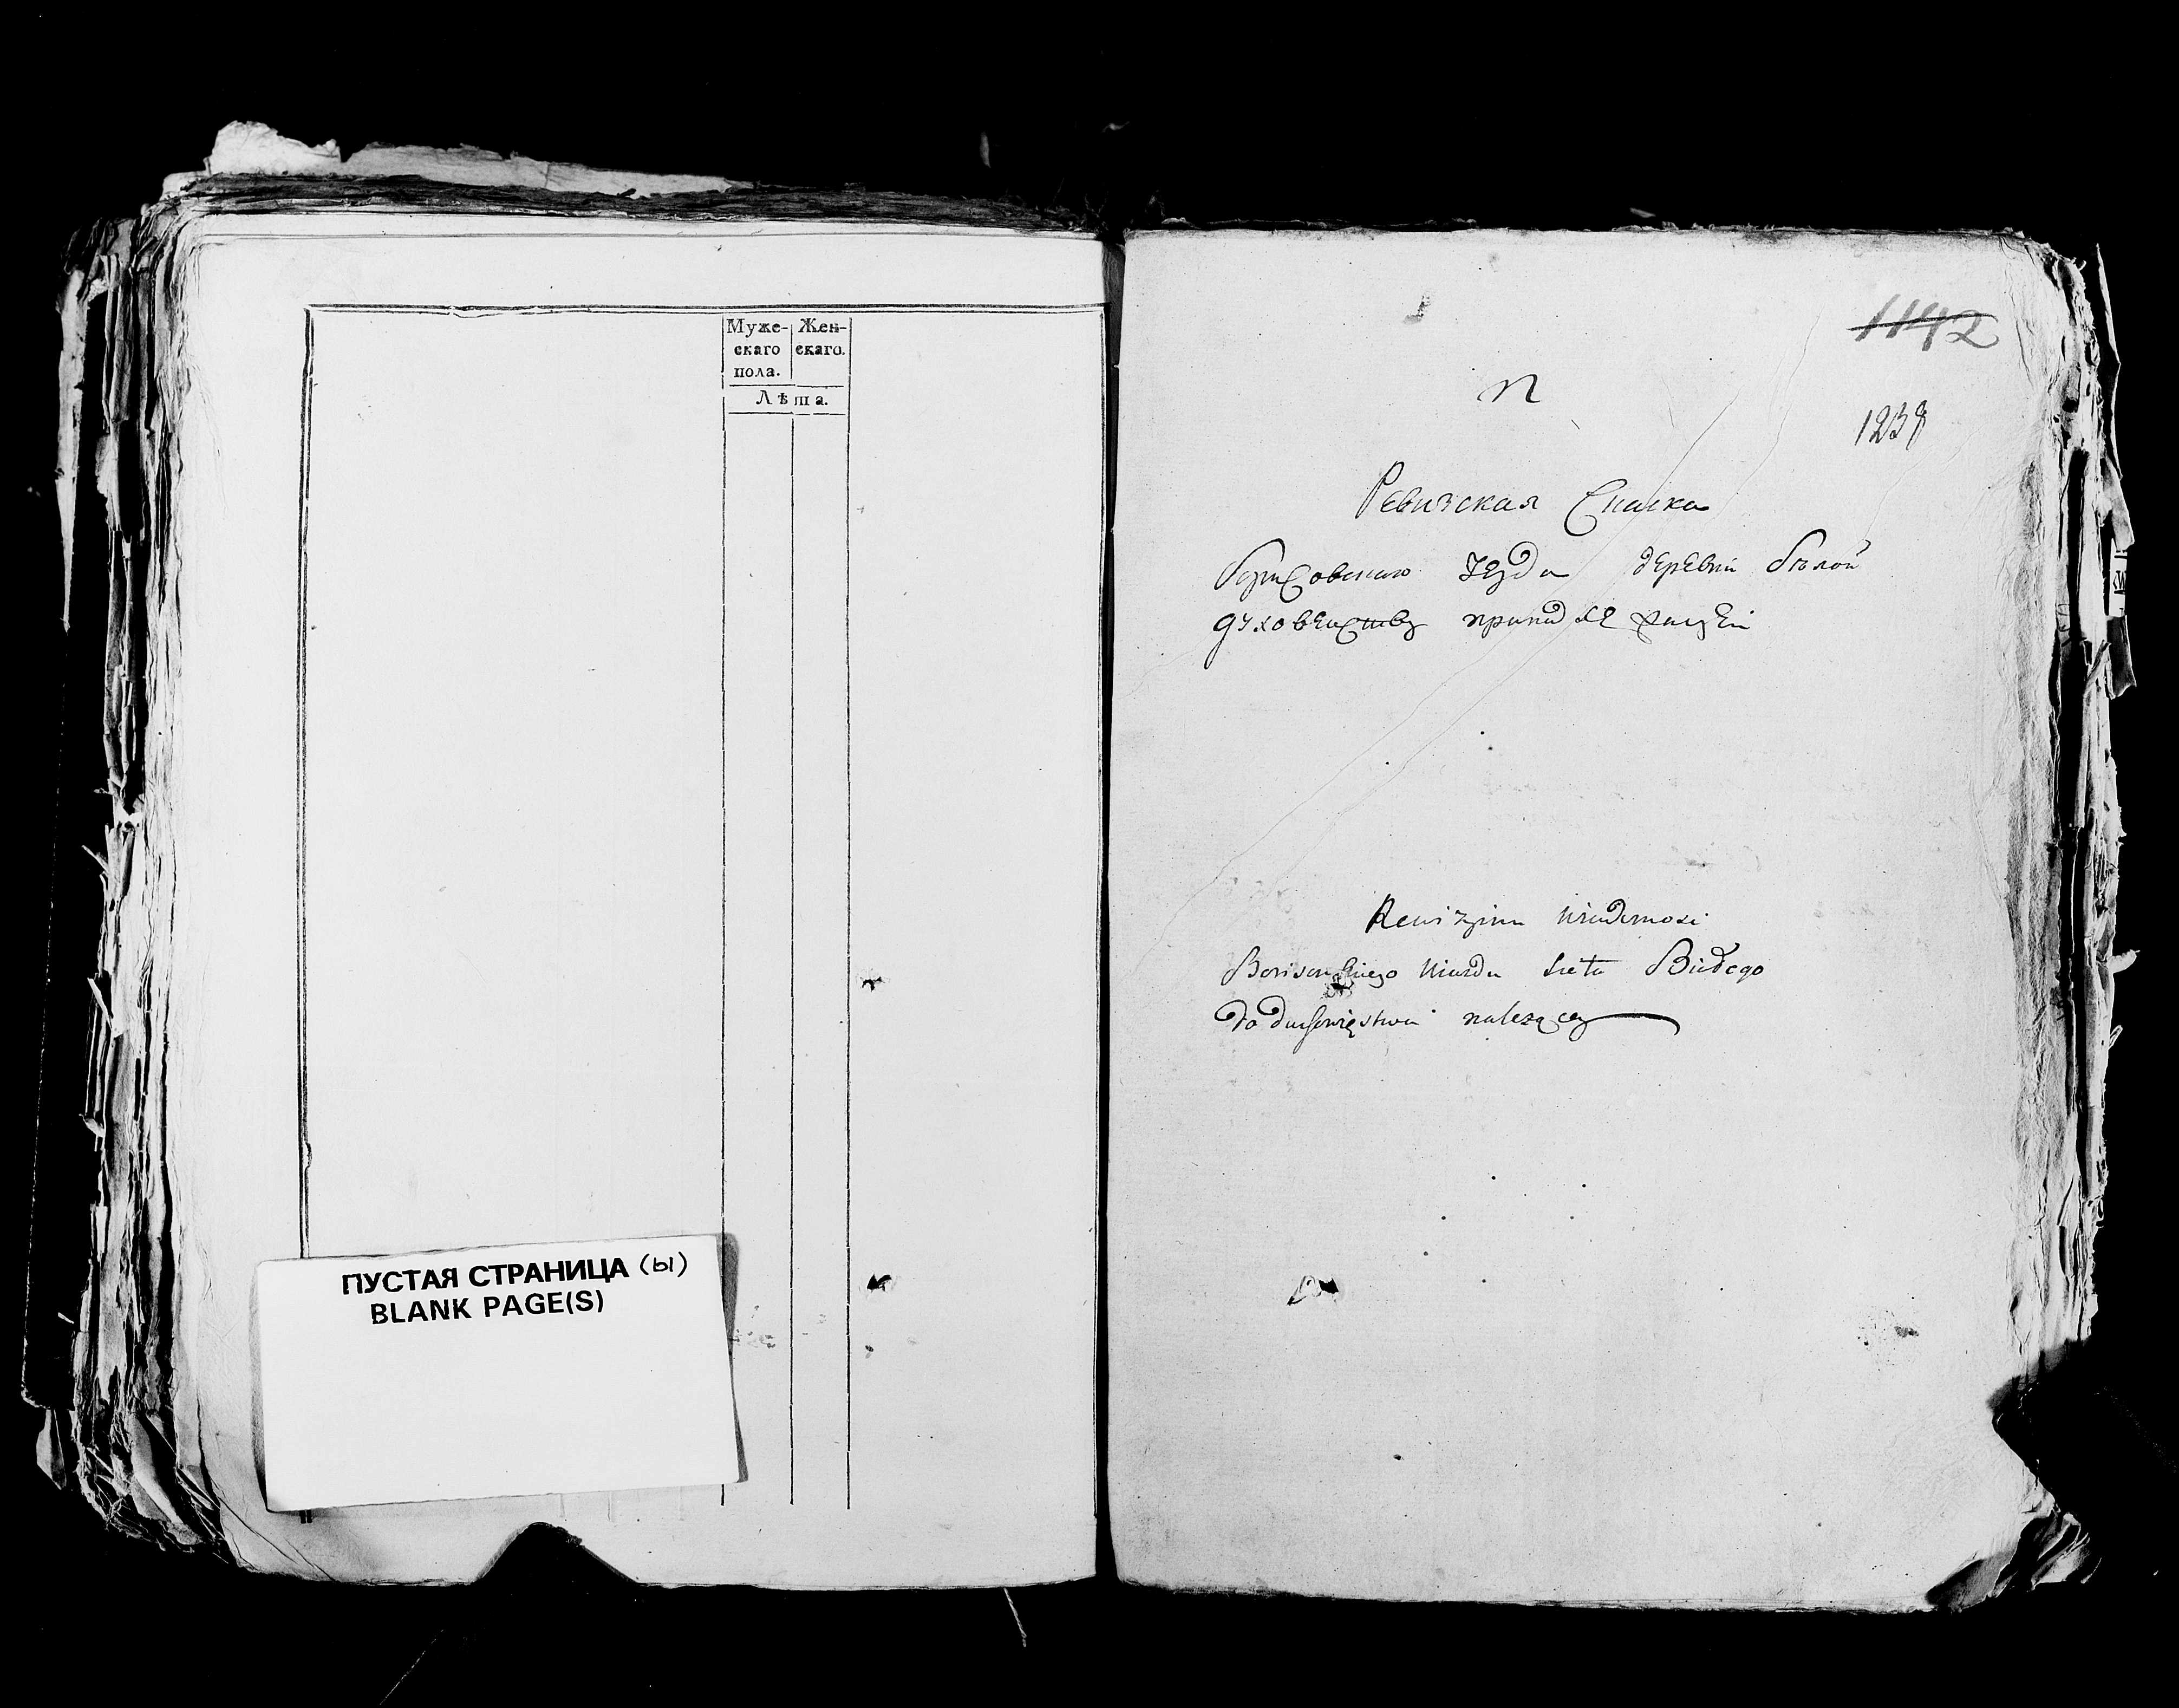 Муже- Жен-
скаго скаго.
пола.
Лѣта.
ПУСТАЯ СТРАНИЦА (ы)
BLANK PAGE(S)
1142
n
1238
Ревизская Скаска
Борисовскаго уезда деревни бѣлой
духовенству принадлежащей
Rewizyina wiadomosc
Borisowskiego Uiazdu Sieła Białego
do duchowięstwa nalezącey